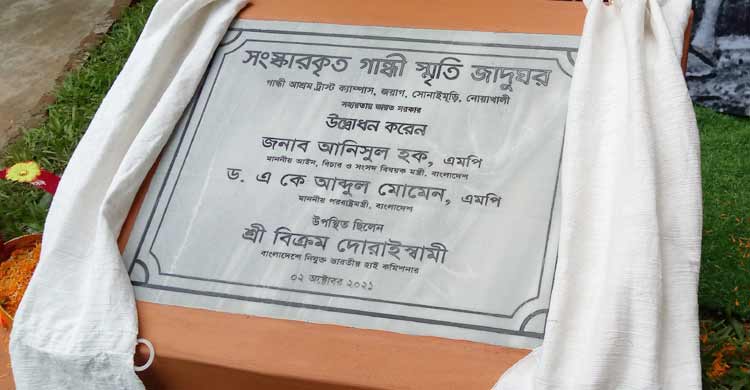 সংস্কারকৃত গান্ধী স্মৃতি জাদুঘর
গান্ধী আশ্রম ট্রাস্ট ক্যাম্পাস, জয়াগ, সোনাইমুড়ি, নোয়াখালী
সহায়তায় ভারত সরকার
উদ্বোধন করেন
জনাব আনিসুল হক, এমপি
মাননীয় আইন, বিচার ও সংসদ বিষয়ক মন্ত্রী, বাংলাদেশ
ড. এ কে আব্দুল মোমেন, এমপি
মাননীয় পররাষ্ট্রমন্ত্রী, বাংলাদেশ
উপস্থিত ছিলেন
শ্রী বিক্রম দোরাইস্বামী
বাংলাদেশে নিযুক্ত ভারতীয় হাই কমিশনার
০২ অক্টোবর ২০২১